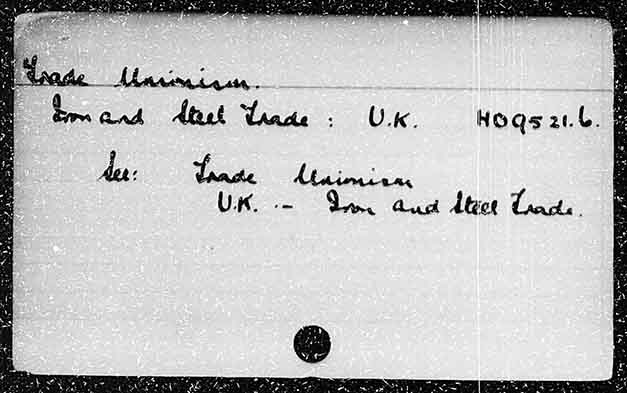 Trade Unionism.
Iron and Steel Trade : U.K. HD9521.6.
See: Trade Unionism
U.K. - Iron and Steel Trade.